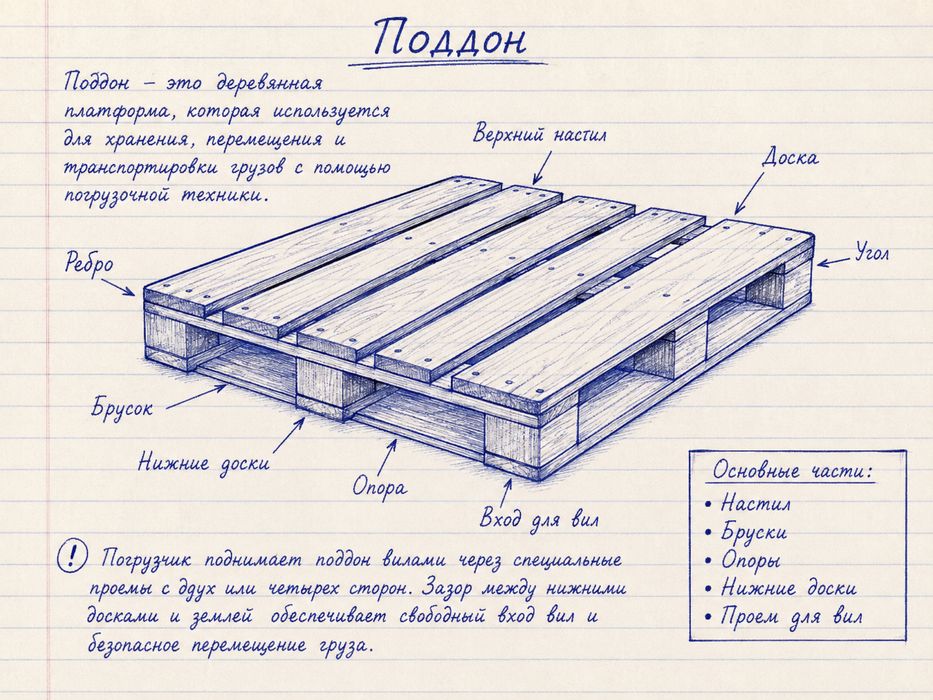 Поддон
Поддон – это деревянная
платформа, которая используется
для хранения, перемещения и
транспортировки грузов с помощью
погрузочной техники.
Верхний настил
Доска
Ребро
Угол
Брусок
Нижние доски
Опора
Вход для вил
Основные части:
• Настил
• Бруски
• Опоры
• Нижние доски
• Проем для вил
! Погрузчик поднимает поддон вилами через специальные
проемы с ддух или четырех сторон. Зазор между нижними
досками и землей обеспечивает свободный вход вил и
безопасное перемещение груза.